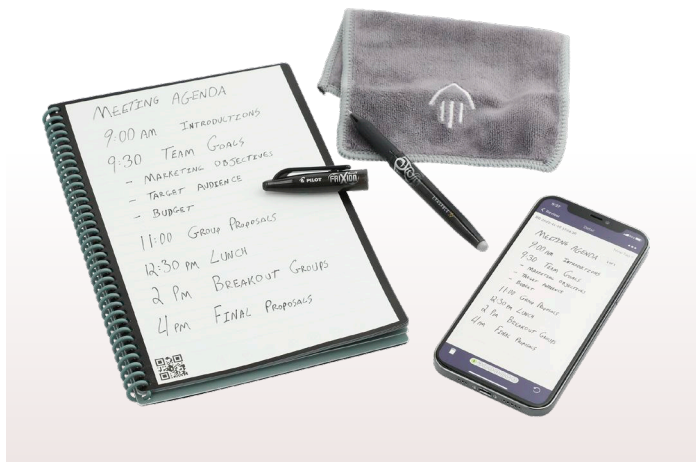 MEETING AGENDA
9:00 AM INTRODUCTIONS
9:30 TEAM GOALS
- MARKETING OBJECTIVES
- TARGET AUDIENCE
- BUDGET
11:00 GROUP PROPOSALS
12:30 PM LUNCH
2 PM BREAKOUT GROUPS
4 PM FINAL PROPOSALS
PILOT FRIXION
MEETING AGENDA
9:00 AM INTRODUCTIONS
9:30 TEAM GOALS
- MARKETING OBJECTIVES
- TARGET AUDIENCE
- BUDGET
11:00 GROUP PROPOSALS
12:30 PM LUNCH
2 PM BREAKOUT GROUPS
4 PM FINAL PROPOSALS